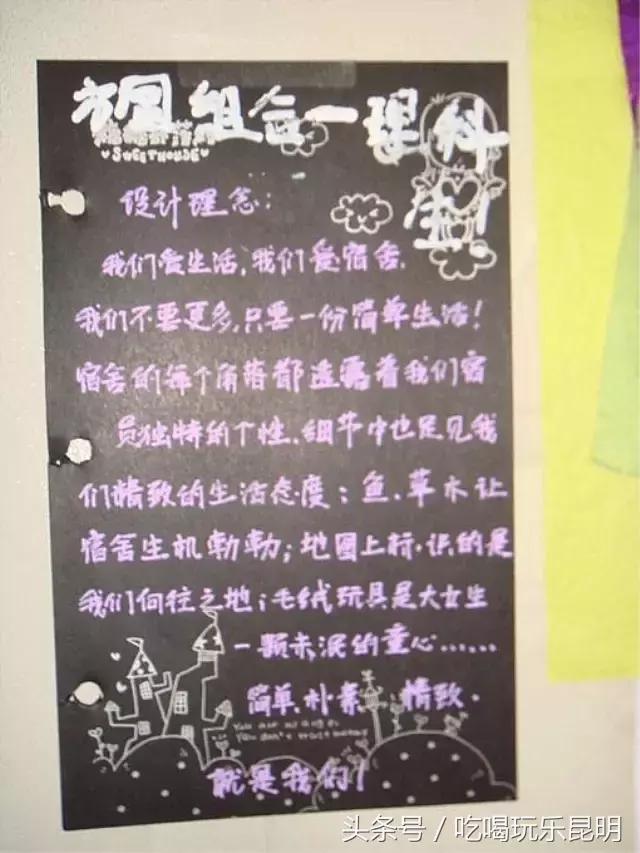 方圆组合一理科生!
SWEETHOUSE
设计理念:
我们爱生活,我们爱宿舍.
我们不要更多,只要一份简单生活!
宿舍的每个角落都透露着我们宿
员独特的个性.细节中也足见我
们精致的生活态度:鱼、草木让
宿舍生机勃勃;地图上标识的是
我们向往之地;毛绒玩具是大女生
一颗未泯的童心......
简单、朴素、精致.
You don't
就是我们!
头条号/吃喝玩乐昆明